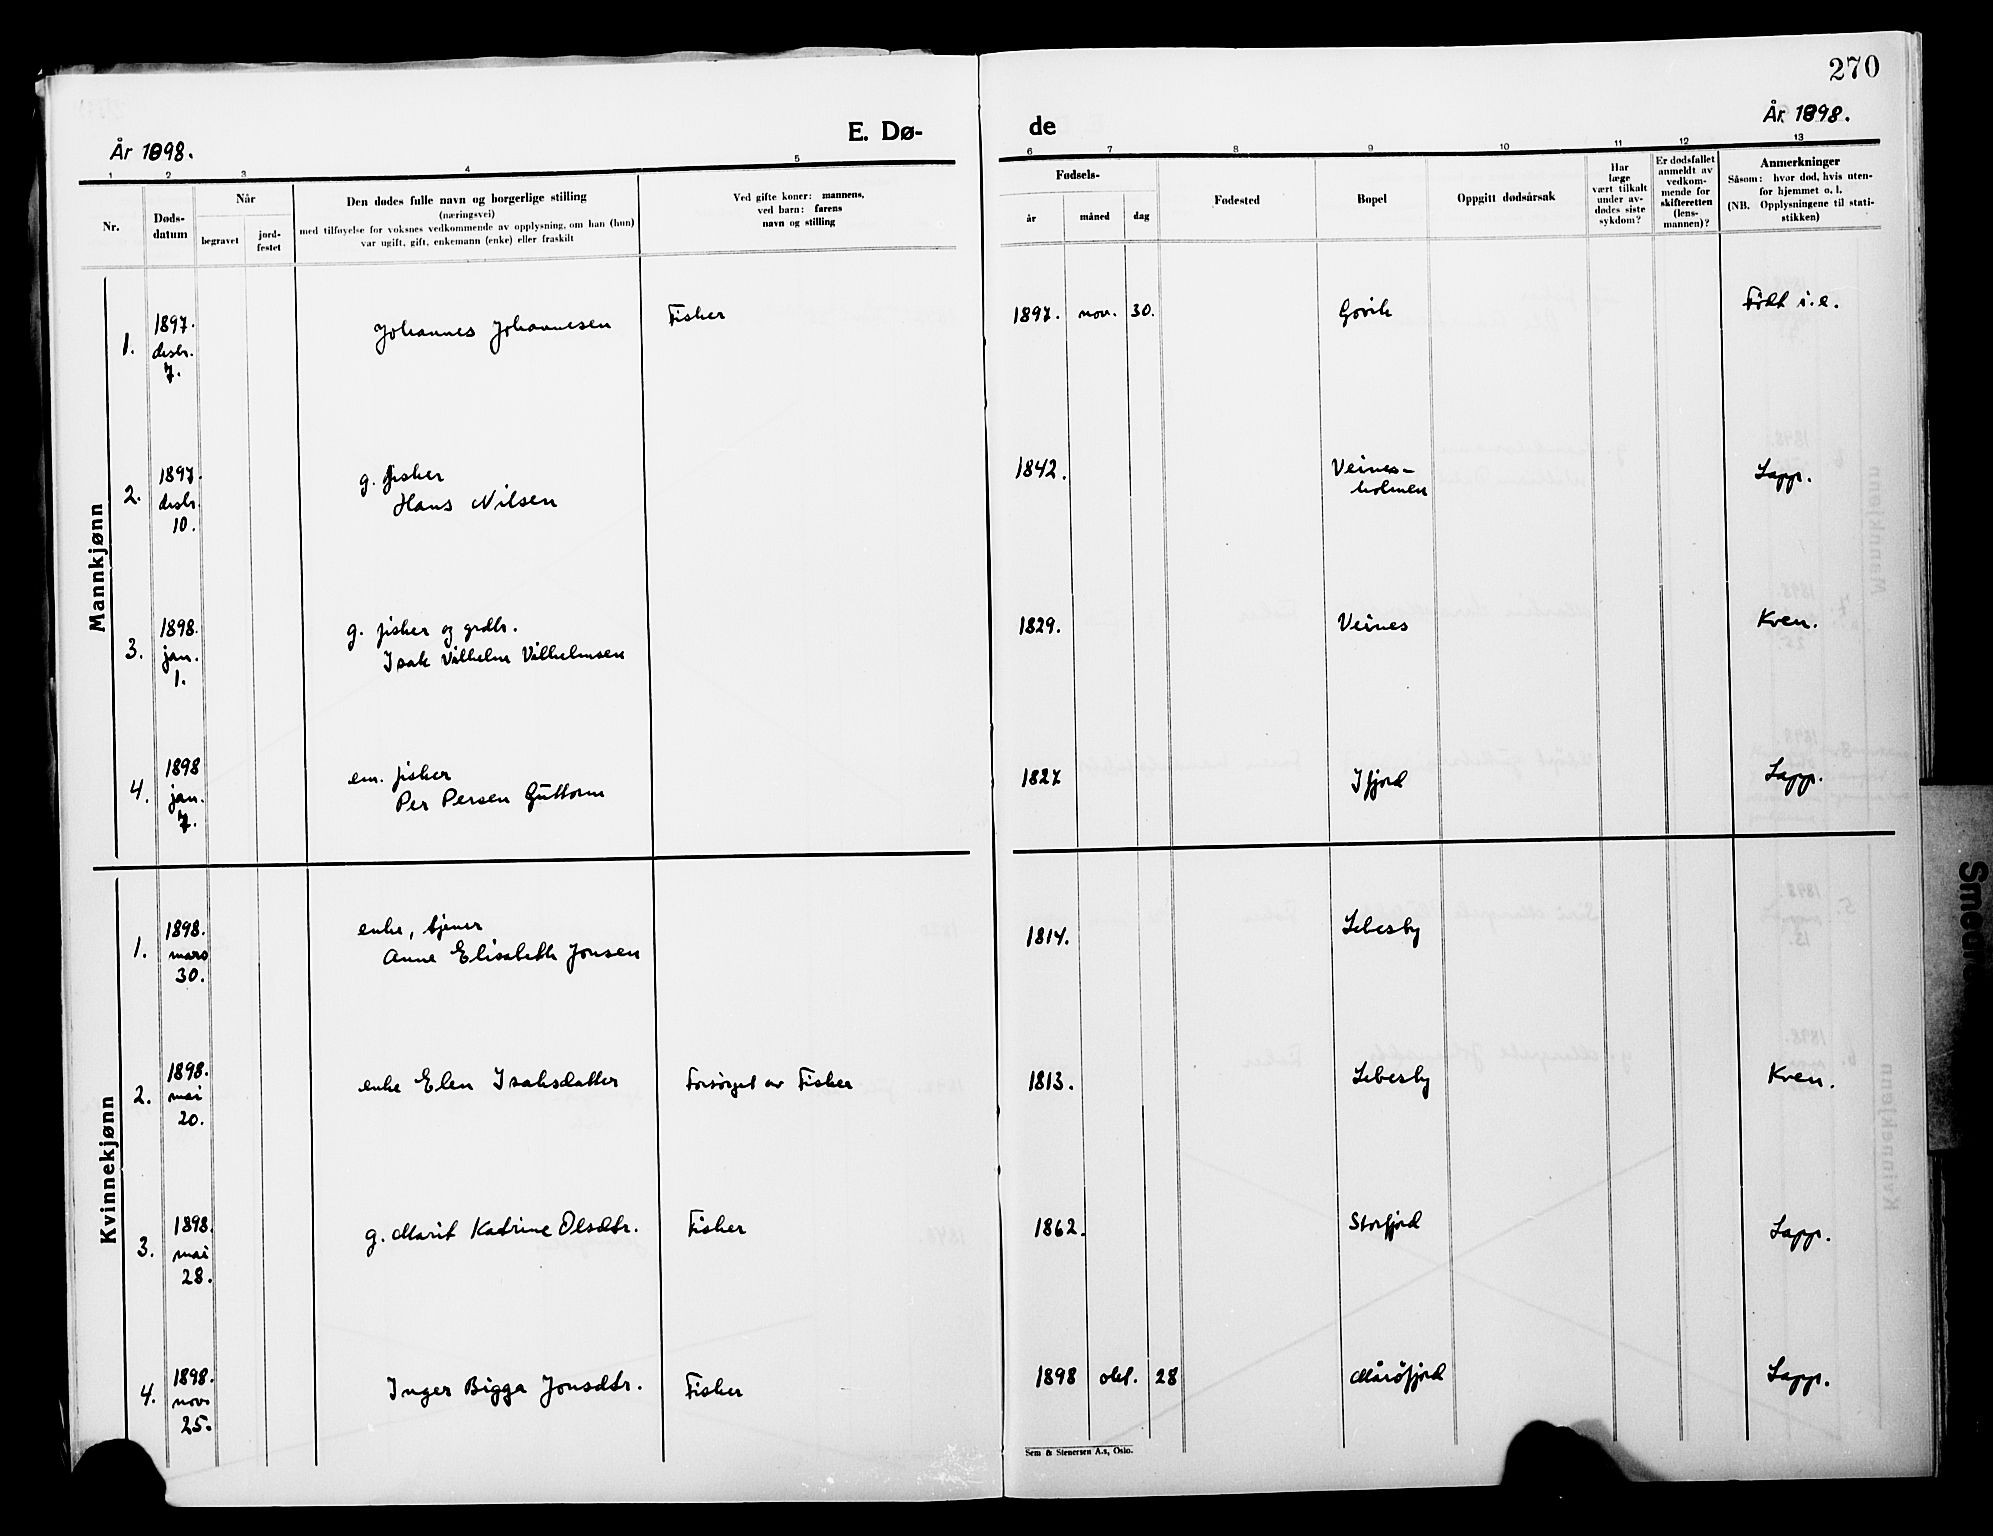 270
År 1898.
E. Dø-
de
År 1898.
1 2 3 4 5 6 7 8 9 10 11 12 13
Nr.
Døds-
datum
Når
begravet
jord-
festet
Den dødes fulle navn og borgerlige stilling
(næringsvei)
med tilføyelse for voksnes vedkommende av opplysning, om han (hun)
var ugift, gift, enkemann (enke) eller fraskilt
Ved gifte koner: mannens,
ved barn: farens
navn og stilling
Fødsels-
år måned dag
Fødested
Bopel
Oppgitt dødsårsak
Har
læge
vært tilkalt
under av-
dødes siste
sykdom?
Er dødsfallet
anmeldt av
vedkom-
mende for
skifteretten
(lens-
mannen)?
Anmerkninger
Såsom: hvor død, hvis uten-
for hjemmet o. l.
(NB. Opplysningene til stati-
stikken)
Mannkjønn
1. 1897. desbr. 7. Johannes Johannesen Fisker 1897. nov. 30. Govik Født i.e.
2. 1897. desbr. 10. g. fisker
Hans Nilsen 1842. Veines-
holmen Lapp.
3. 1898. jan. 1. g. fisker og grdbr.
Isak Vilhelm Vilhelmsen 1829. Veines Kven.
4. 1898 jan. 7. em. fisker
Per Persen Guttorm 1827 Ifjord Lapp.
Kvinnekjønn
1. 1898. mars 30. enke, tjener
Anne Elisabeth Jonsen 1814. Lebesby
2. 1898. mai 20. enke Elen Isaksdatter Forsørget av Fisker 1813. Lebesby Kven.
3. 1898. mai 28. g. Marit Katrine Olsdtr. Fisker 1862. Storfjord Lapp.
4. 1898. nov. 25. Inger Bigga Jonsdtr. Fisker 1898 okt. 28 Mårøfjord Lapp.
Sem & Stenersen A.s, Oslo.